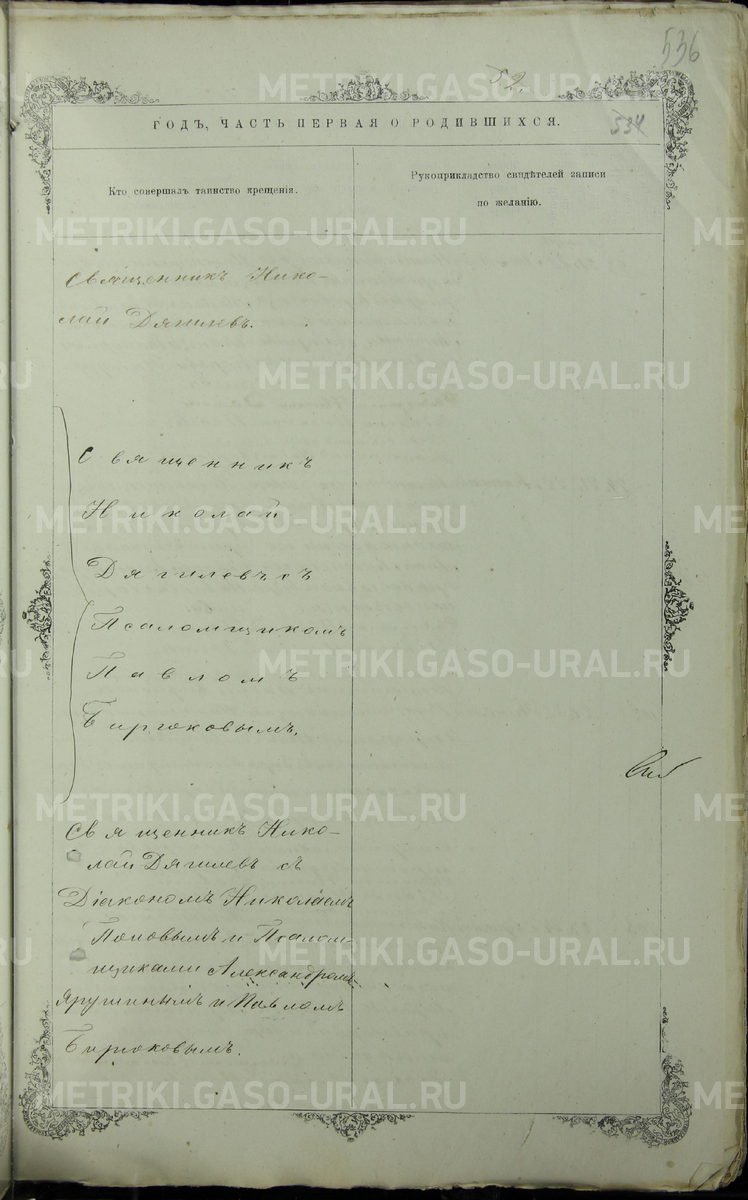 536
52.
ГОДЪ, ЧАСТЬ ПЕРВАЯ О РОДИВШИХСЯ.
534
Кто совершалъ таинство крещенія.
Рукоприкладство свидѣтелей записи
по желанію.
Священникъ Нико-
лай Дягилевъ.
Священникъ
Николай
Дягилевъ съ
Псаломщикомъ
Павломъ
Бирюковымъ.
Священникъ Нико-
лай Дягилевъ съ
Діакономъ Николаемъ
Поповымъ и Псалом-
щиками Александромъ
Ярушинымъ и Павломъ
Бирюковымъ.
METRIKI.GASO-URAL.RU